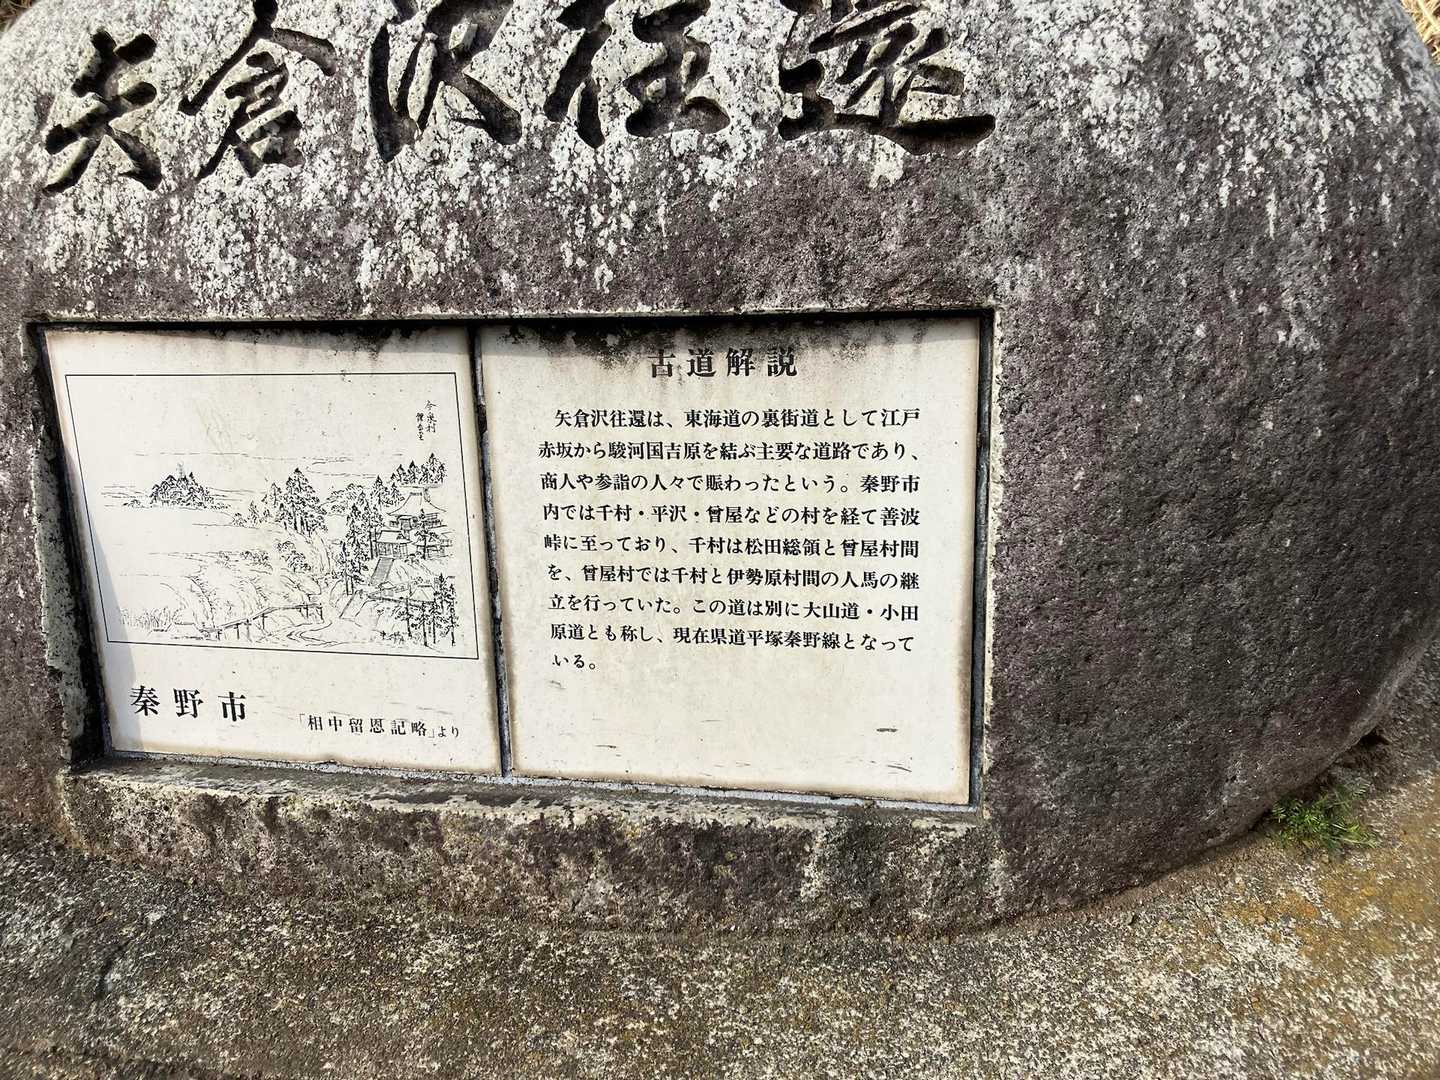 矢倉沢往還
古道解説
矢倉沢往還は、東海道の裏街道として江戸
赤坂から駿河国吉原を結ぶ主要な道路であり、
商人や参詣の人々で賑わったという。秦野市
内では千村・平沢・曾屋などの村を経て善波
峠に至っており、千村は松田総領と曾屋村間
を、曾屋村では千村と伊勢原村間の人馬の継
立を行っていた。この道は別に大山道・小田
原道とも称し、現在県道平塚秦野線となって
いる。
今泉村
秦野市
「相中留恩記略」より